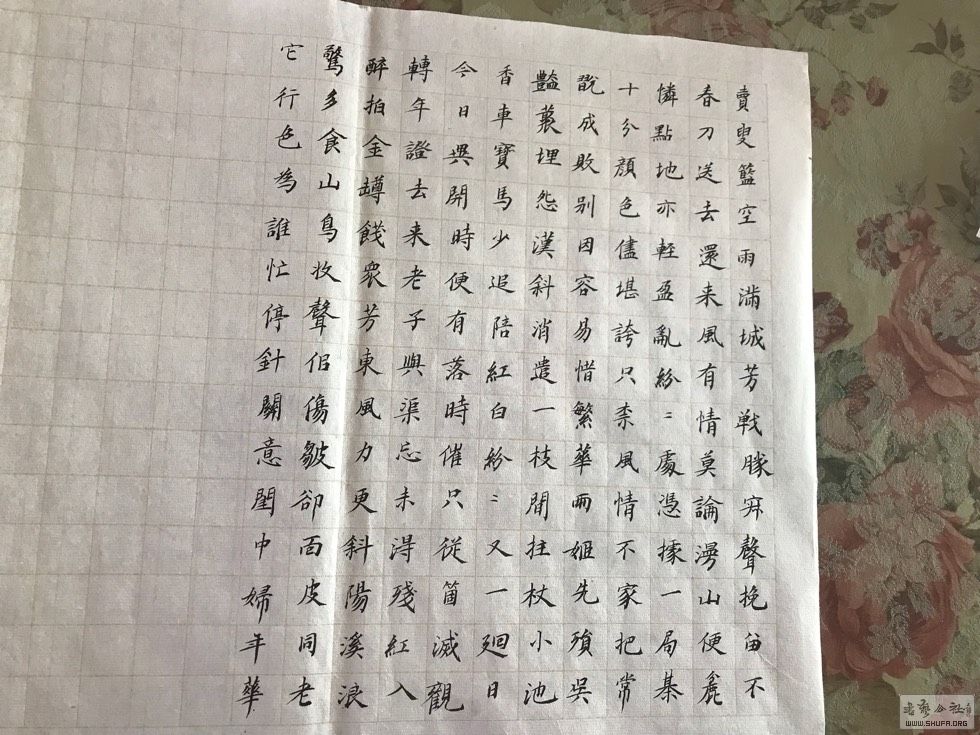 賣叟籃空雨滿城芳戦豚寂聲挽畱不
春刀送去還来風有情莫論漫山便麁
憐點地亦輕盈亂紛〻處憑據一局棊
十分顏色儘堪誇只柰風情不家把常
翫成敗别因容易惜繁華兩姬先殞吳
豔蓑埋怨漢斜消遣一枝閒拄杖小池
香車寶馬少追陪紅白紛〻又一廻日
今日開時便有落時催只從箇滅觀
轉年證去来老子與渠忘未淂殘紅入
醉拍金罇餞衆芳東風力更斜陽溪浪
驚多食山鳥收聲佀傷皺卻面皮同老
它行色為誰忙停針關意閨中婦年華
WWW.SHUFA.ORG